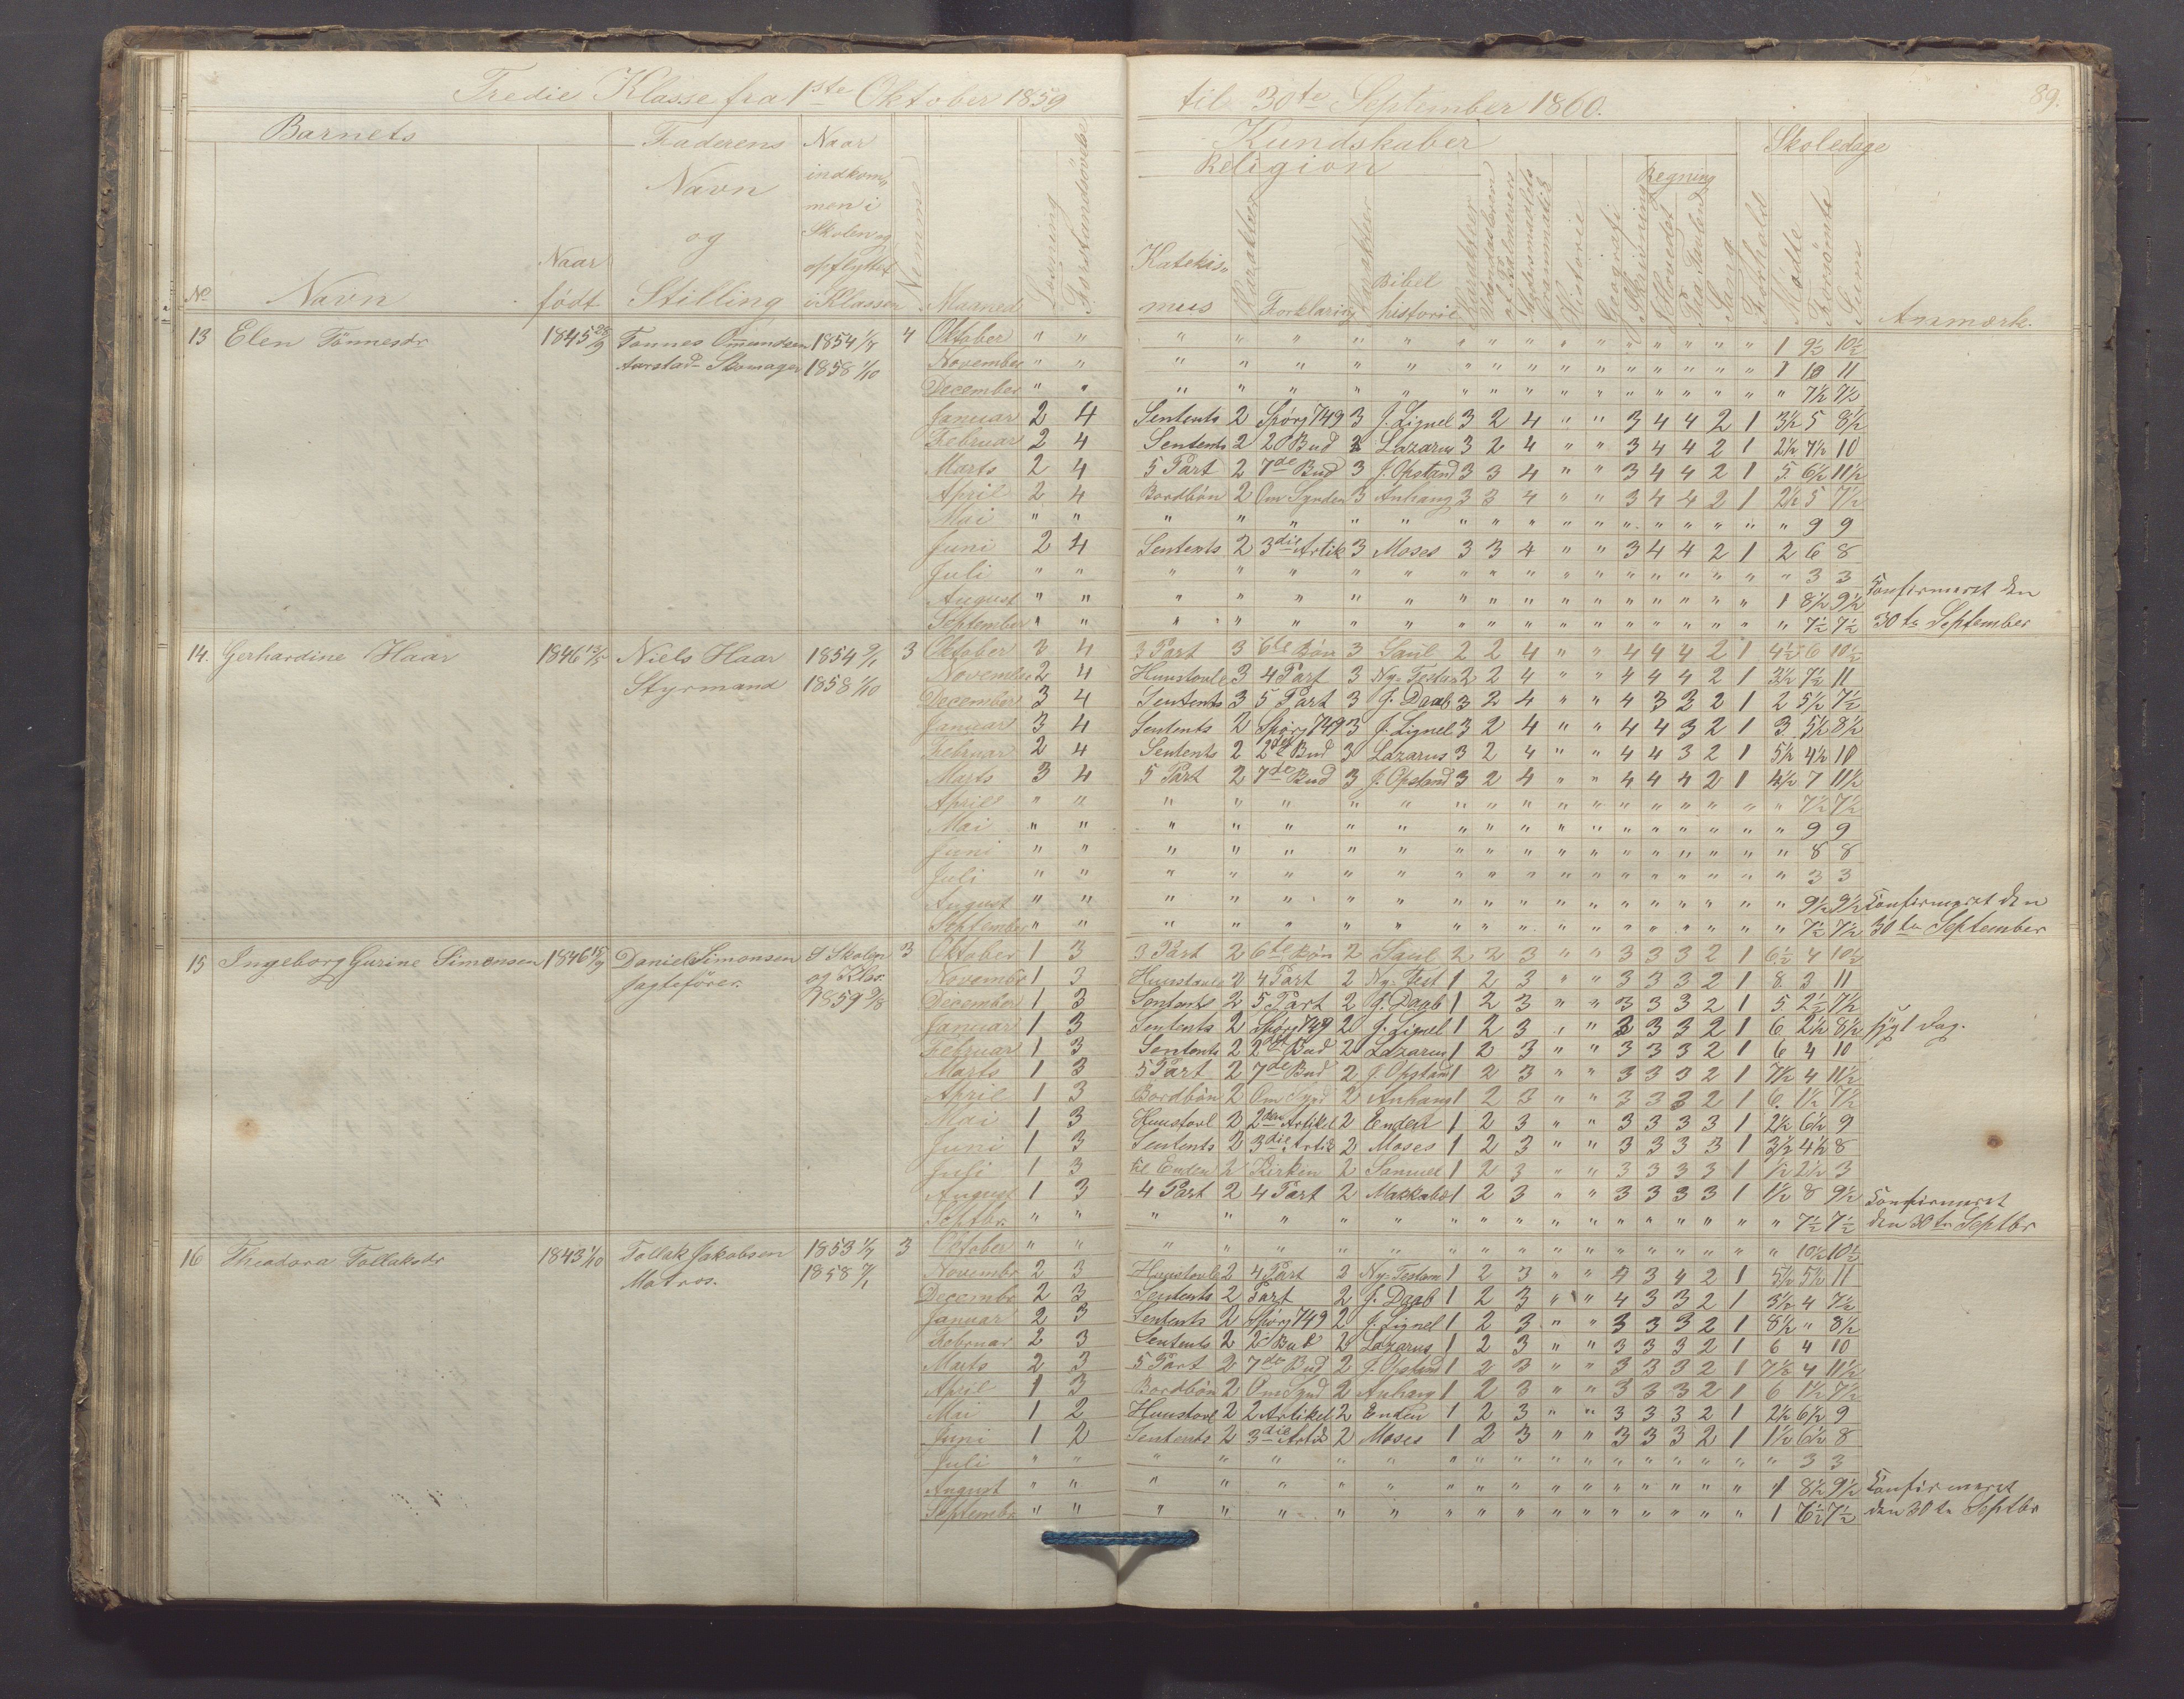 Tredie Klasse fra 1ste Oktober 1859 til 30te September 1860. 89.
Barnets Faderens Naar Kundskaber Skoledage
Religion Regning
Navn indkom-
men i
og Skolen og
Naar opflyttet Katekis-
No Navn født Stilling i Klassen Nemme Maaned Læsning Forstandsøvelser mus Karakter Forklaring Karakter Bibel historie Karakter Historie Geografi Skrivning Hovedet Sang Forhold Mødte Forsømte Sum Anmærk.
13 Elen Tönnesdr 1845 28/9 Tonnes Ommundsen 1854 1/7 4 Oktober " " " " " " " " " " " " " " " " " 1 9½ 10½
Aurstad Skomager 1858 1/10 November " " " " " " " " " " " " " " " " " 1 10 11
December " " " " " " " " " " " " " " " " " " 7½ 7½
Januar 2 4 Sentents 2 Spörj 749 3 J. Lignel 3 2 4 " " 3 4 4 2 1 3½ 5 8½
Februar 2 4 Sentents 2 2 Bud 2 Lazarus 3 2 4 " " 3 4 4 2 1 2½ 7½ 10
Marts 2 4 5 Part 2 7de Bud 3 J. Opstand 3 3 4 " " 3 4 4 2 1 5 6½ 11½
April 2 4 Bordbön 2 Om Synden 3 Anhang 3 3 4 " " 3 4 4 2 1 2½ 5 7½
Mai " " " " " " " " " " " " " " " " " " 9 9
Juni 2 4 Sentents 2 3die Artik 3 Moses 3 3 4 " " 3 4 4 2 1 2 6 8
Juli " " " " " " " " " " " " " " " " " " 3 3
August " " " " " " " " " " " " " " " " " 1 8½ 9½ Konfirmeret den
September " " " " " " " " " " " " " " " " " " 7½ 7½ 30te September
14. Gerhardine Haar 1846 13/5 Niels Haar 1854 9/1 3 Oktober 3 4 3 Part 3 6te Bön 3 Saul 2 2 4 " " 4 4 4 2 1 4½ 6 10½
Styrmand 1858 1/10 November 2 4 Huustavle 3 4 Part 3 Ny. Testa 2 2 4 " " 4 4 4 2 1 3½ 7½ 11
December 3 4 Sentents 3 5 Part 3 J. Daab 3 2 4 " " 4 3 3 2 1 2 5½ 7½
Januar 3 4 Sentents 2 Spörj 749 3 J. Lignel 3 2 4 " " 4 4 3 2 1 3 5½ 8½
Februar 2 4 Sentents 2 2det Bud 3 Lazarus 3 2 4 " " 4 4 3 2 1 5½ 4½ 10
Marts 3 4 5 Part 2 7de Bud 3 J. Opstand 3 2 4 " " 4 4 4 2 1 4½ 7 11½
April " " " " " " " " " " " " " " " " " " 7½ 7½
Mai " " " " " " " " " " " " " " " " " " 9 9
Juni " " " " " " " " " " " " " " " " " " 8 8
Juli " " " " " " " " " " " " " " " " " " 3 3
August " " " " " " " " " " " " " " " " " " 9½ 9½ Konfirmeret den
September " " " " " " " " " " " " " " " " " " 7½ 7½ 30te September
15 Ingeborg Gurine Simonsen 1846 15/9 Daniel Simonsen I Skolen 3 Oktober 1 3 3 Part 2 6te Bön 2 Saul 2 2 3 " " 3 3 3 2 1 6½ 4 10½
Jagtefører. og Klss. Novembr 1 3 Huustavle 2 4 Part 2 Ny. Test 1 2 3 " " 3 3 3 2 1 8. 3 11
1859 9/8 December 1 3 Sentents 2 5 Part 2 J. Daab 1 2 3 " " 3 3 3 2 1 5 2½ 7½
Januar 1 3 Sentents 2 Spörj 749 2 J. Lignel 1 2 3 " " 3 3 3 2 1 6 2½ 8½ sygl Dag.
Februar 1 3 Sentents 2 2det Bud 2 Lazarus 1 2 3 " " 3 3 3 2 1 6 4 10
Marts 1 3 5 Part 2 7de Bud 2 J. Opstand 1 2 3 " " 3 3 3 2 1 7½ 4 11½
April 1 3 Bordbön 2 Om Synd 2 Anhang 1 2 3 " " 3 3 3 2 1 6 1½ 7½
Mai 1 3 Huustavl 2 2den Artikel 2 Enden 1 2 3 " " 3 3 3 3 1 2½ 6½ 9
Juni 1 3 Sentents 2 3die Artik 2 Moses 1 2 3 " " 3 3 3 3 1 3½ 4½ 8
Juli 1 3 til Enden 2 Kirken 2 Samuel 1 2 3 " " 3 3 3 3 1 ½ 2½ 3
August 1 3 4 Part 2 4 Part 2 Makkabæ 1 2 3 " " 3 3 3 3 1 1½ 8 9½ Konfirmeret
Septbr. " " " " " " " " " " " " " " " " " " 7½ 7½ den 30te Septbr
16 Theodora Tollaksdr 1843 1/10 Tollak Jakobsen 1853 1/7 3 Oktober " " " " " " " " " " " " " " " " " " 10½ 10½
Matros. 1858 7/1 Novembr 2 3 Huustavle 2 4 Part 2 Ny. Testam 1 2 3 " " 4 3 4 2 1 5½ 5½ 11
Decembr 2 3 Sentents 2 Part 2 J. Daab 1 2 3 " " 4 3 3 2 1 3½ 4 7½
Januar 2 3 Sentents 2 Spörj 749 2 J. Lignel 1 2 3 " " 3 3 3 2 1 8½ " 8½
Februar 2 3 Sentents 2 2 Bud 2 Lazarus 1 2 3 " " 3 3 3 2 1 6 4 10
Marts 2 3 5 Part 2 7de Bud 2 J. Opstand 1 2 3 " " 3 3 3 2 1 7½ 4 11½
April 1 3 Bordbön 2 Om Synd 2 Anhang 1 2 3 " " 3 3 3 2 1 6 1½ 7½
Mai 1 2 Huustavl 2 2 Artikel 2 Enden 1 2 3 " " 3 3 3 2 1 2½ 6½ 9
Juni 1 2 Sentents 2 3die Artik 2 Moses 1 2 3 " " 3 3 3 2 1 1½ 6½ 8
Juli " " " " " " " " " " " " " " " " " " 3 3
August " " " " " " " " " " " " " " " " " 1 8½ 9½ Konfirmeret
Septembr. " " " " " " " " " " " " " " " " " 1 6½ 7½ den 30te Septbr